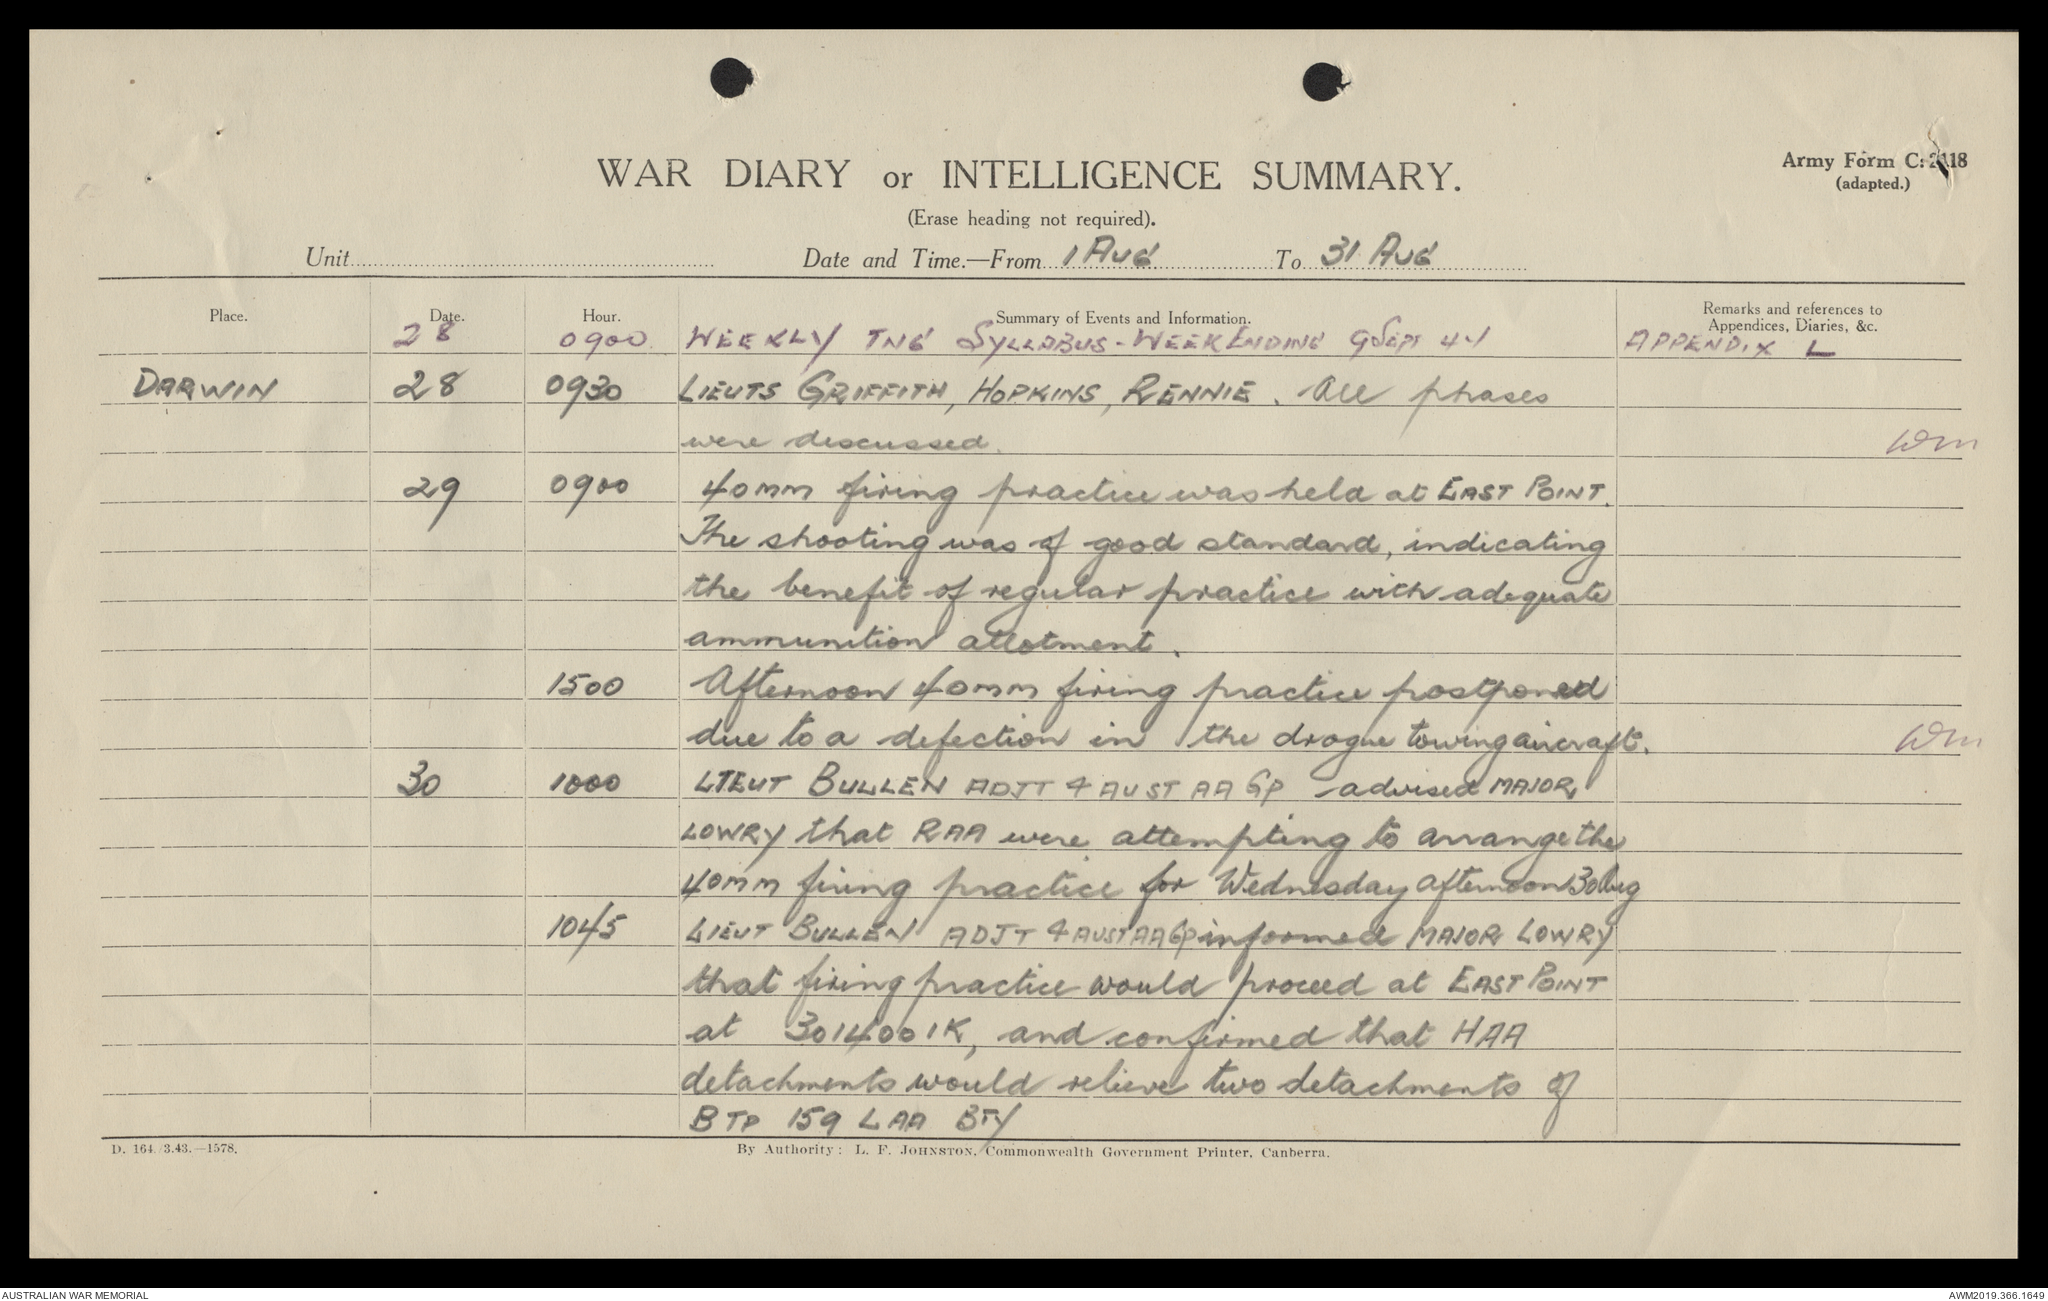 WAR DIARY or INTELLIGENCE SUMMARY.
Army Form C. 2118
(adapted.)
(Erase heading not required).
Unit Date and Time.—From 1 AUG To 31 AUG
Place. Date. Hour. Summary of Events and Information. Remarks and references to Appendices, Diaries, &c.
28 0900 WEEKLY TNG SYLLABUS - WEEK ENDING 9 SEPT 44 APPENDIX L
DARWIN 28 0930 LIEUTS GRIFFITH, HOPKINS, RENNIE. All phases
were discussed. WM
29 0900 40mm firing practice was held at EAST POINT.
The shooting was of good standard, indicating
the benefit of regular practice with adequate
ammunition allotment.
1500 Afternoon 40mm firing practice postponed
due to a defection in the drogue towing aircraft. WM
30 1000 LIEUT BULLEN ADJT 4 AUST AA GP advised MAJOR
LOWRY that RAA were attempting to arrange the
40mm firing practice for Wednesday afternoon 30 Aug
1045 LIEUT BULLEN ADJT 4 AUST AA GP informed MAJOR LOWRY
that firing practice would proceed at EAST POINT
at 301400IK, and confirmed that HAA
detachments would relieve two detachments of
B TP 159 LAA BTY
D. 164/3.43.—1578.
By Authority: L. F. JOHNSTON, Commonwealth Government Printer, Canberra.
AUSTRALIAN WAR MEMORIAL
AWM2019.366.1649